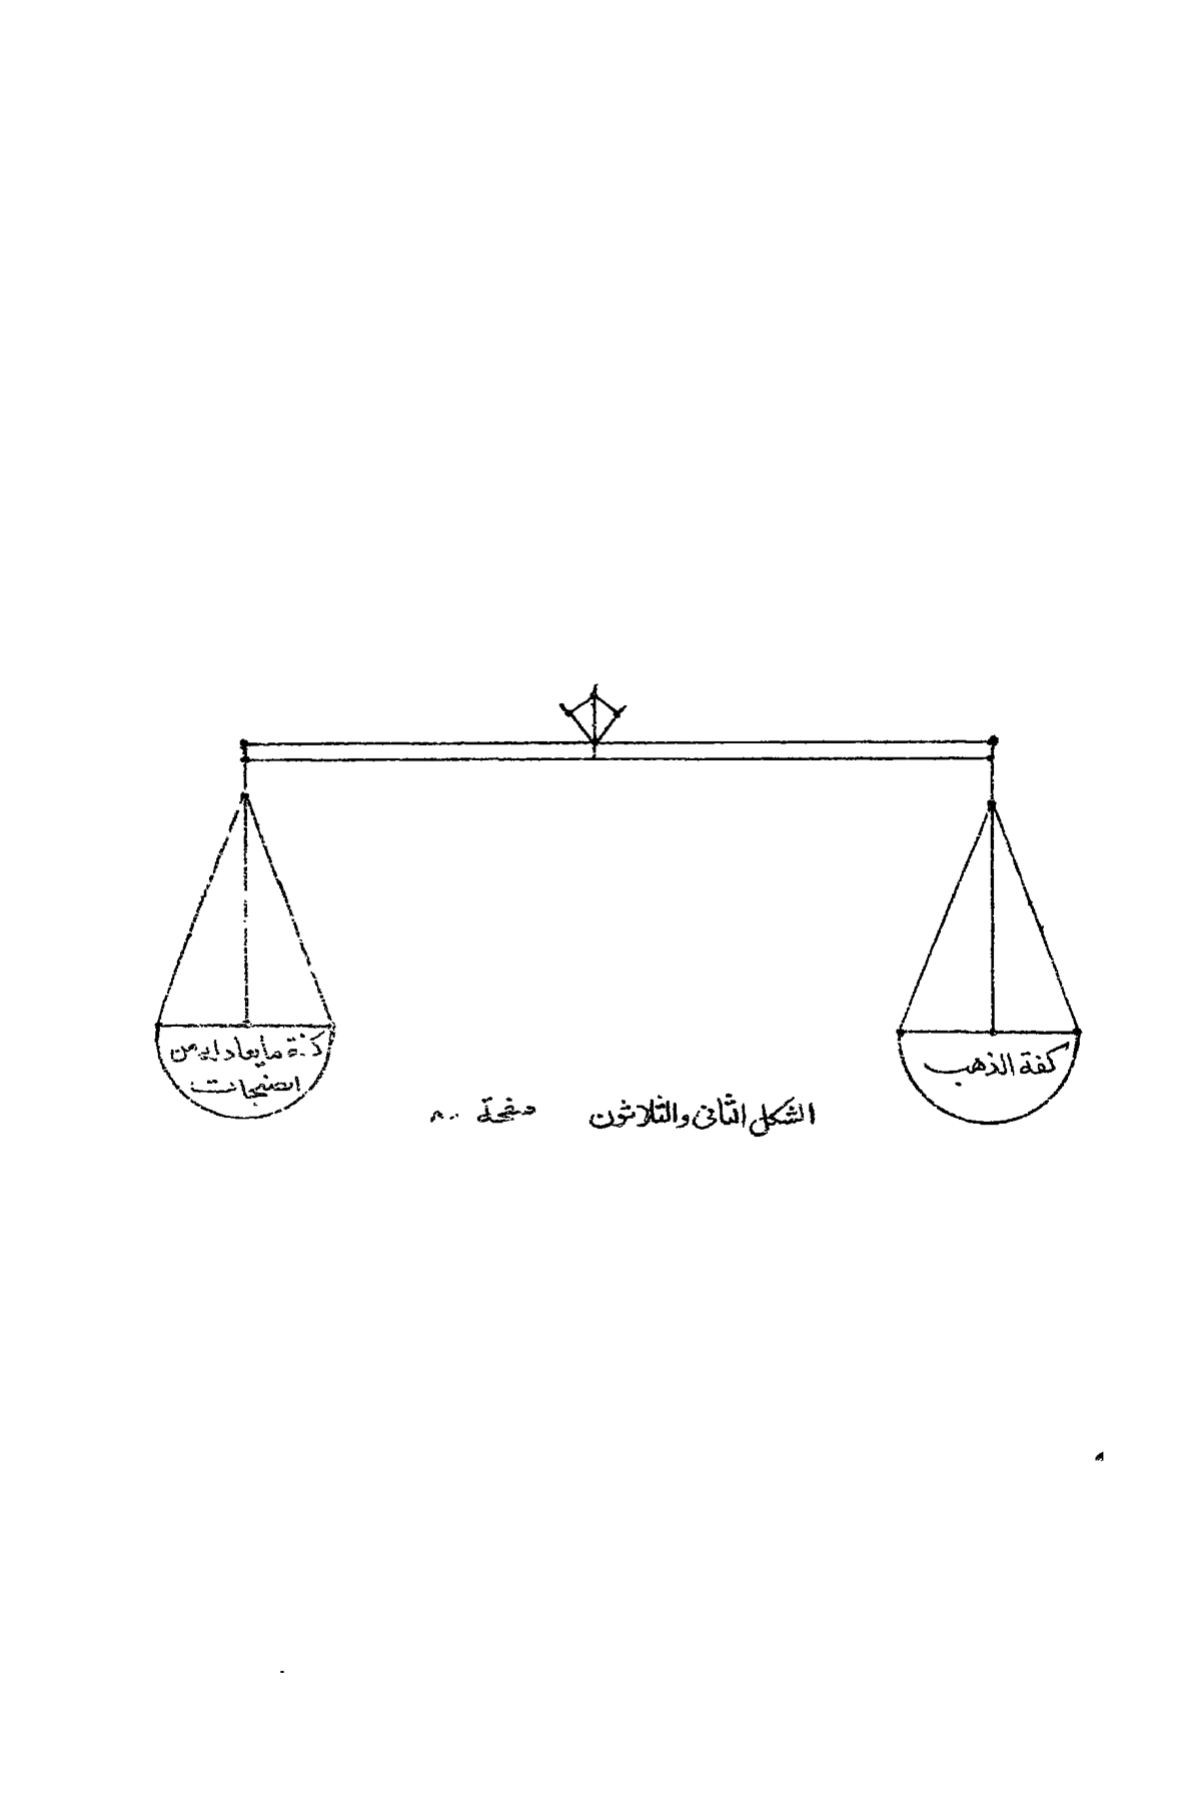 كفة الذهب
كفة ما يعادله من
الصنجات
الشكل الثانى والثلاثون صفحة ٨٠